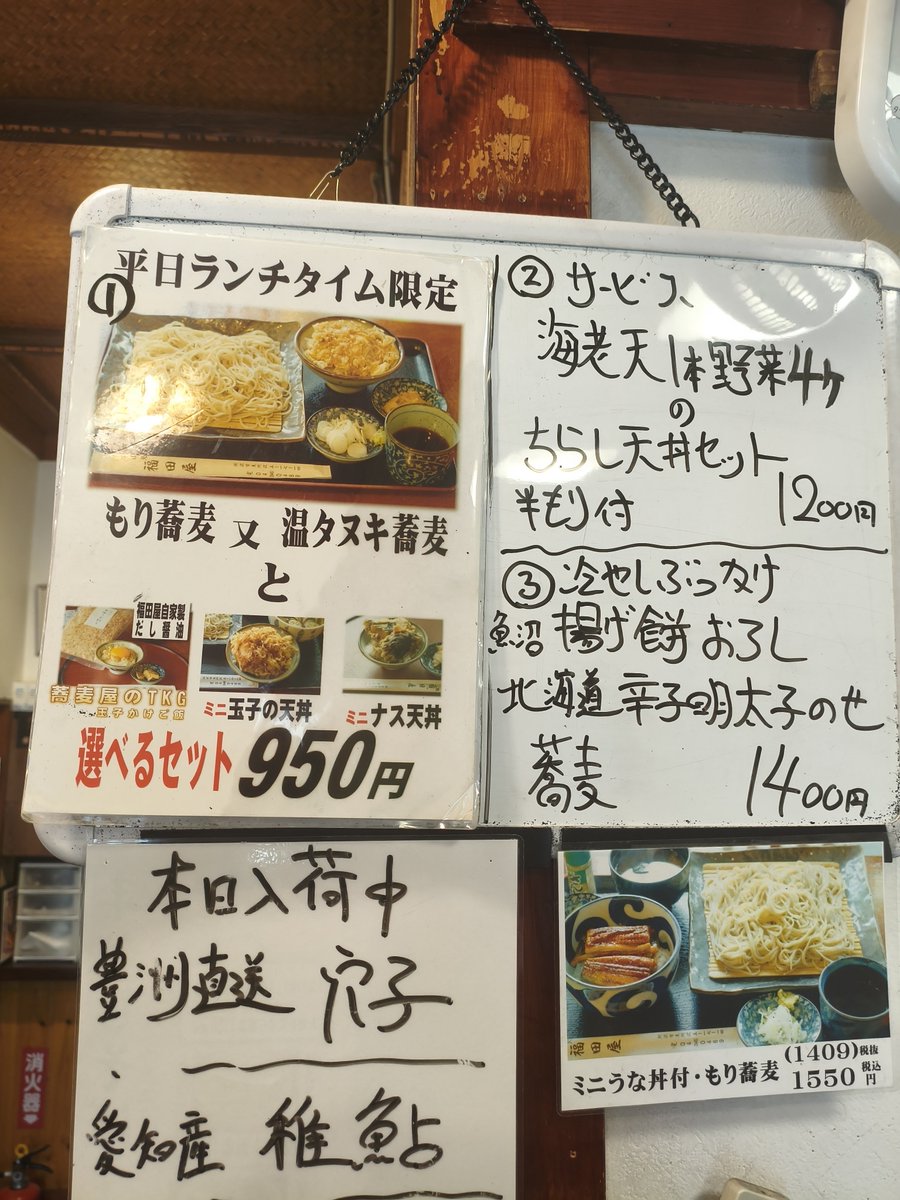 ① 平日ランチタイム限定
福田屋
もり蕎麦 又 温タヌキ蕎麦
と
福田屋自家製
だし醤油
蕎麦屋のTKG
玉子かけご飯
ミニ玉子の天丼
ミニナス天丼
選べるセット 950円
② サービス、
海老天1本野菜4ヶ
の
ちらし天丼セット
半もり付 1200円
③ 冷やしぶっかけ
魚沼 揚げ餅おろし
北海道 辛子明太子のせ
蕎麦 1400円
本日入荷中
豊洲直送 穴子
愛知産 稚鮎
福田屋
ミニうな丼付・もり蕎麦 (1409)税抜
1550税込円
消火器